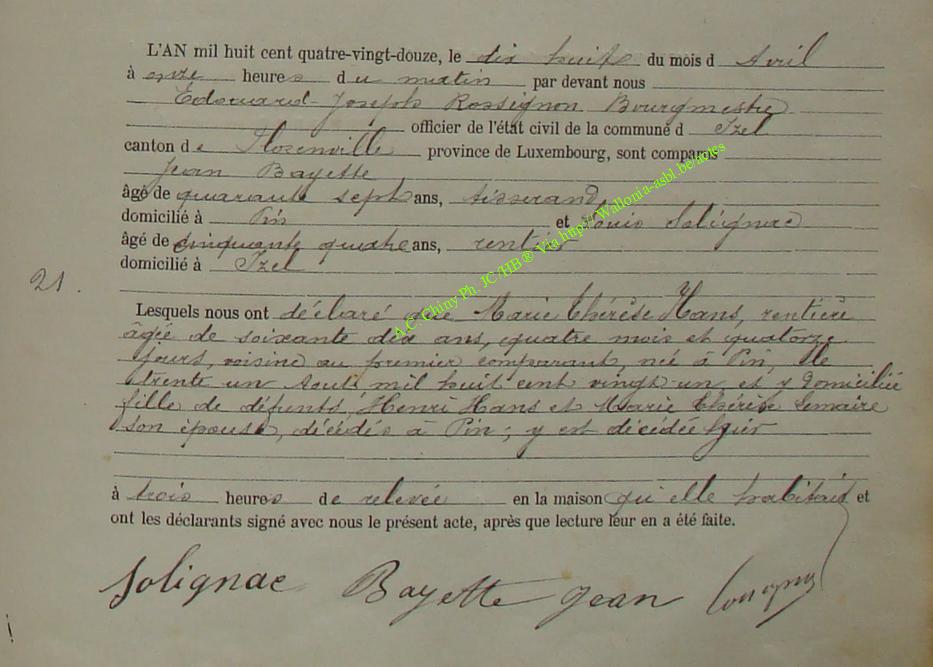 L'AN mil huit cent quatre-vingt-douze, le dix huit du mois d Avril
à onze heures du matin par devant nous
Edouard-Joseph Rossignon Bourgmestre
officier de l'état civil de la commune d Izel
canton de Florenville province de Luxembourg, sont comparus
Jean Bayette
âgé de quarante sept ans, tisserand
domicilié à Pin et Louis Solignac
âgé de cinquante quatre ans, rentier
domicilié à Izel
21.
Lesquels nous ont déclaré que Marie Thérèse Hans, rentière
âgée de soixante dix ans, quatre mois et quatorze
jours, voisine au premier comparant, née à Pin, le
trente un Aout mil huit cent vingt un et y domiciliée
fille de défunts, Henri Hans et Marie Thérèse Lemaire
son épouse, décédés à Pin; y est décédée hier
à trois heures de relevée en la maison qu'elle habitait et
ont les déclarants signé avec nous le présent acte, après que lecture leur en a été faite.
Solignac Bayette Jean
A.C. Chiny Ph. JC/HB ® Via http://Wallonia-asbl.be/actes